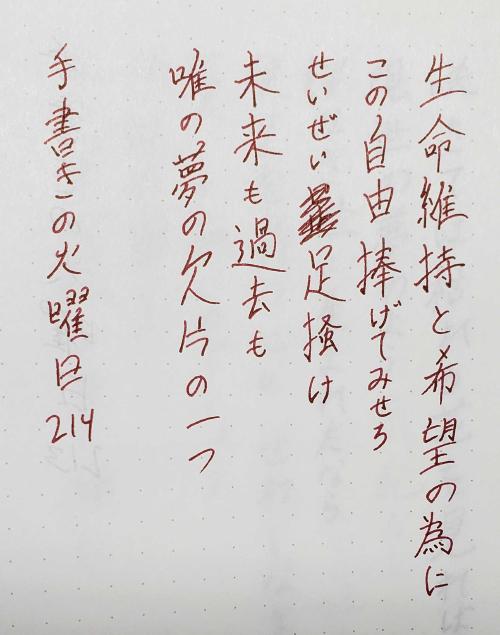 生命維持と希望の為に
この自由捧げてみせろ
せいぜい足掻け
未来も過去も
唯の夢の欠片の一つ
手書きの火曜日214